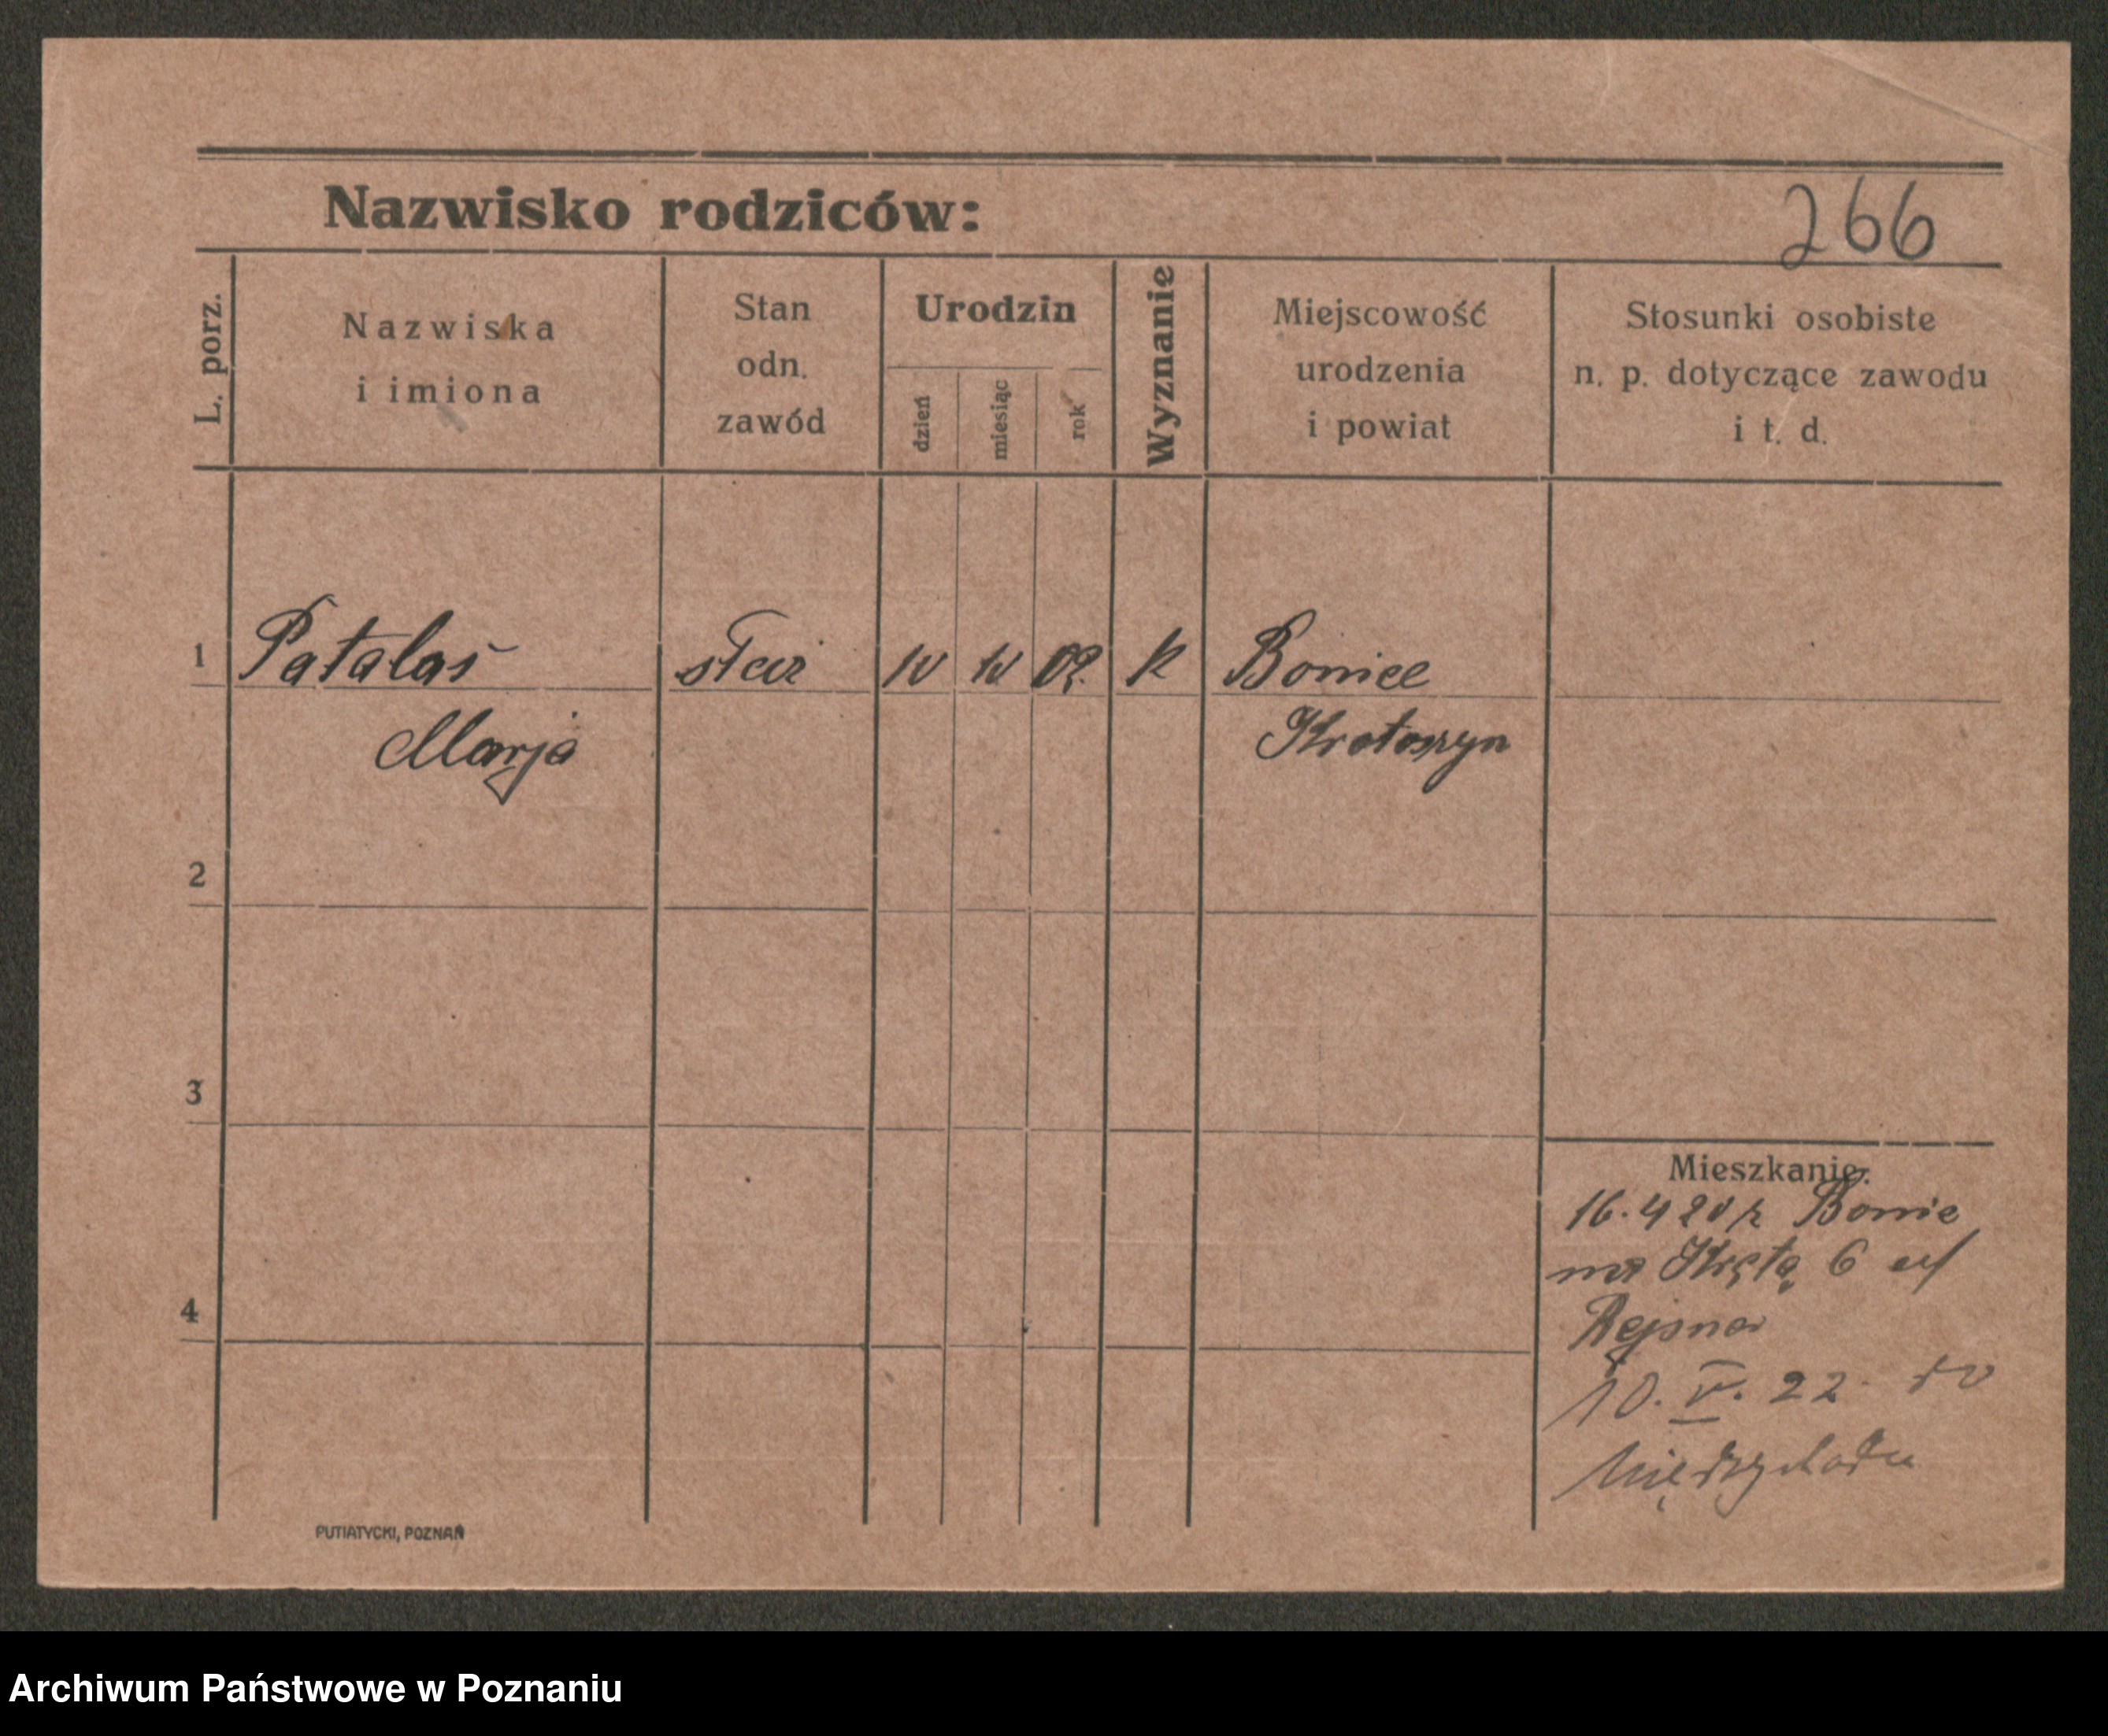 266
Nazwisko rodziców:
L. porz.
Nazwiska
i imiona
Stan
odn.
zawód
Urodzin
dzień
miesiąc
rok
Wyznanie
Miejscowość
urodzenia
i powiat
Stosunki osobiste
n. p. dotyczące zawodu
i t. d.
1 Patalas 10 10 02. k Bonice
Marja Krotoszyn
2
3
4
Mieszkanie:
16.4 20 r Bonic
na Krętą 6
10. V. 22. do
Międzychodu
PUTIATYCKI, POZNAŃ
Archiwum Państwowe w Poznaniu